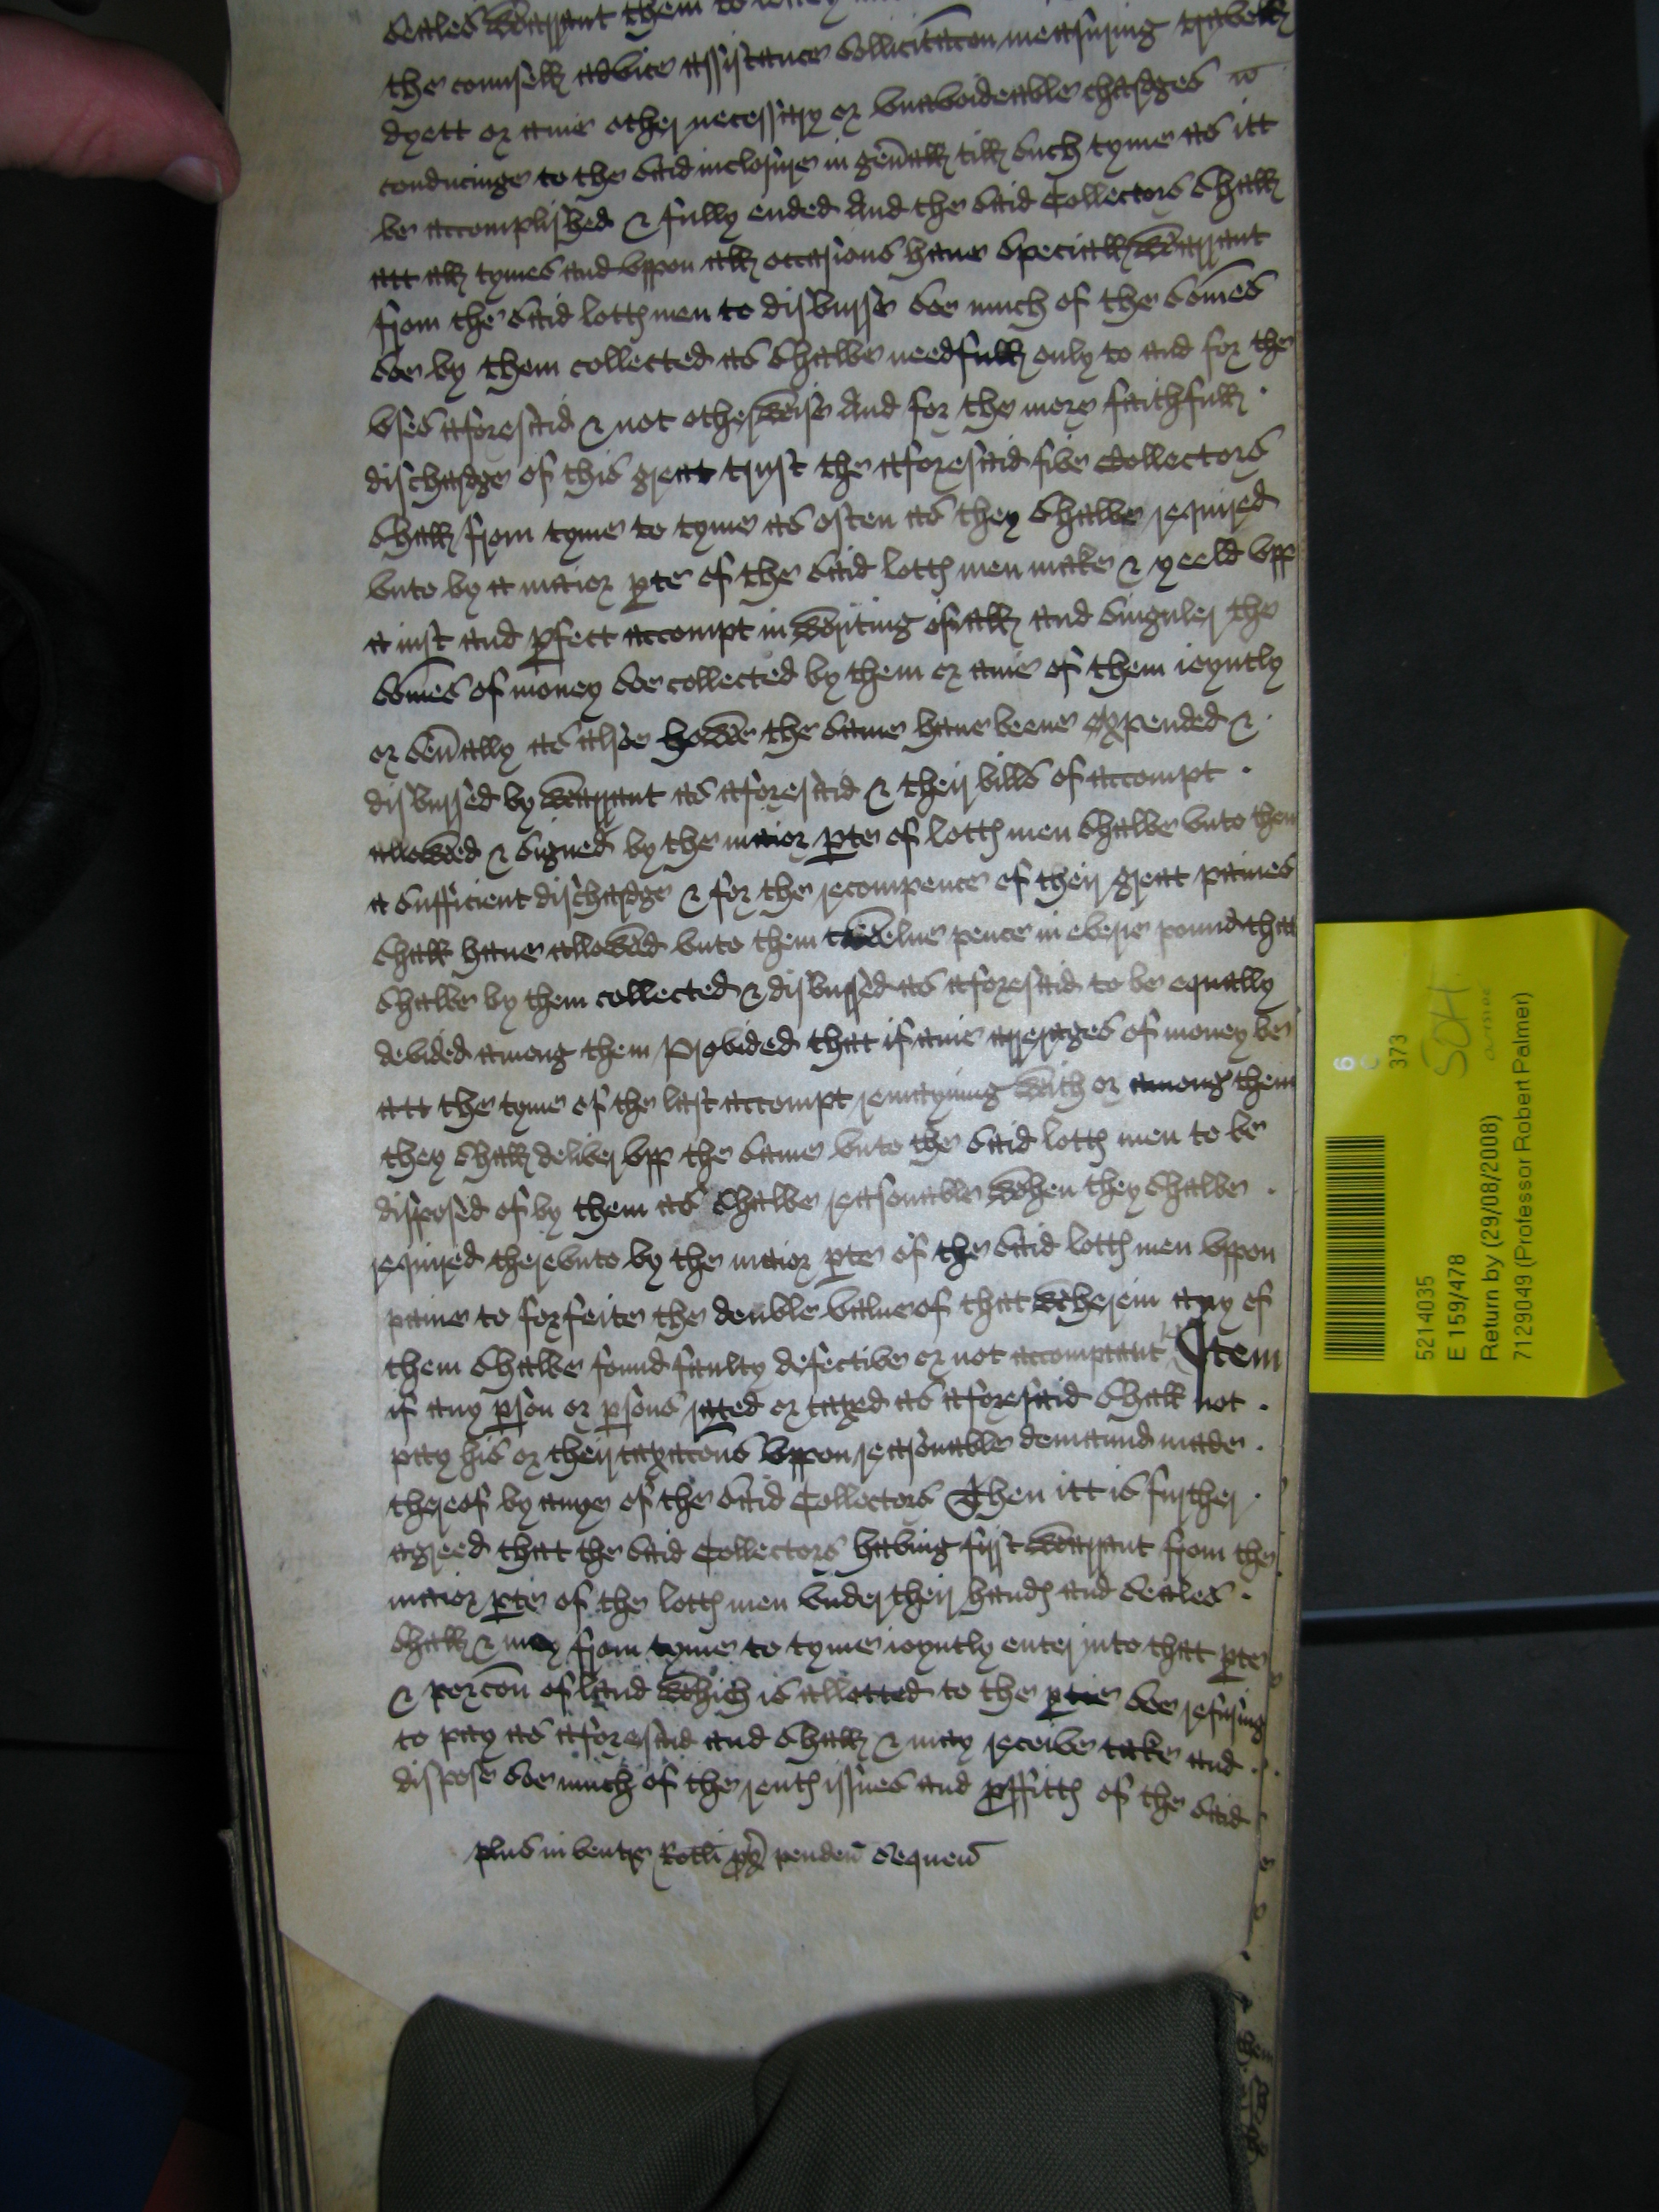 seales warrant them to
the counsell advice assistance sollicitacon measuring travell
dyett or anie other necessary or unavoideable chardges
conducinge to the said inclosure in gen̄all till such tyme as itt
be accomplished & fully ended And the said Collectors shall
att all tymes and uppon all occasions haue speciall warrant
from the said lotth men to disburse soe much of the som̄es
soe by them collected as shalbe needfull only to and for the
uses aforesaid & not otherwise And for the more faithfull
dischardge of this great trust the aforesaid five Collectors
shall from tyme to tyme as often as they shalbe required
unto by a maior pte of the said lotth men make & yeeld upp
a iust and pfect accompt in writing of all and singuler the
som̄es of money soe collected by them or anie of them ioyntly
or sev̄ally as alsoe howe the same haue beene expended &
disbursed by warrant as aforesaid & their bills of accompt
allowed & signed by the maior pte of lotth men shalbe unto them
a sufficient dischardge & for the recompence of their great paines
shall haue allowed unto them twelue pence in everie pound that
shalbe by them collected & disbursed as aforesaid to be equally
devided among them Provided that if anie arrerages of money be
att the tyme of the last accompt remayning with or among them
they shall deliver upp the same unto the said lotth men to be
disposed of by them as shalbe reasonable when they shalbe
required thereunto by the maior pte of the said lotth men uppon
paine to forfeite the double value of that wherein any of
them shalbe found faulty defective or not accomptant Item
if any pson or psons rated or taxed as aforesaid shall not
pay his or their taxacons uppon reasonable demaund made
thereof by anye of the said Collectors Then itt is further
agreed that the said Collectors having first warrant from the
maior pte of the lotth men under their hands and seales
shall & may from tyme to tyme ioyntly enter into that pte
& porcōn of land which is allotted to the ptie soe refusing
to pay as aforesaid and shall & may receive take and
dispose soe much of the rents issues and pffitts of the said
plus in ventre Rotli px̄ penden̄ sequen̄
6
373
SOH
5214035
E 159/478
Return by (29/08/2008)
7129049 (Professor Robert Palmer)